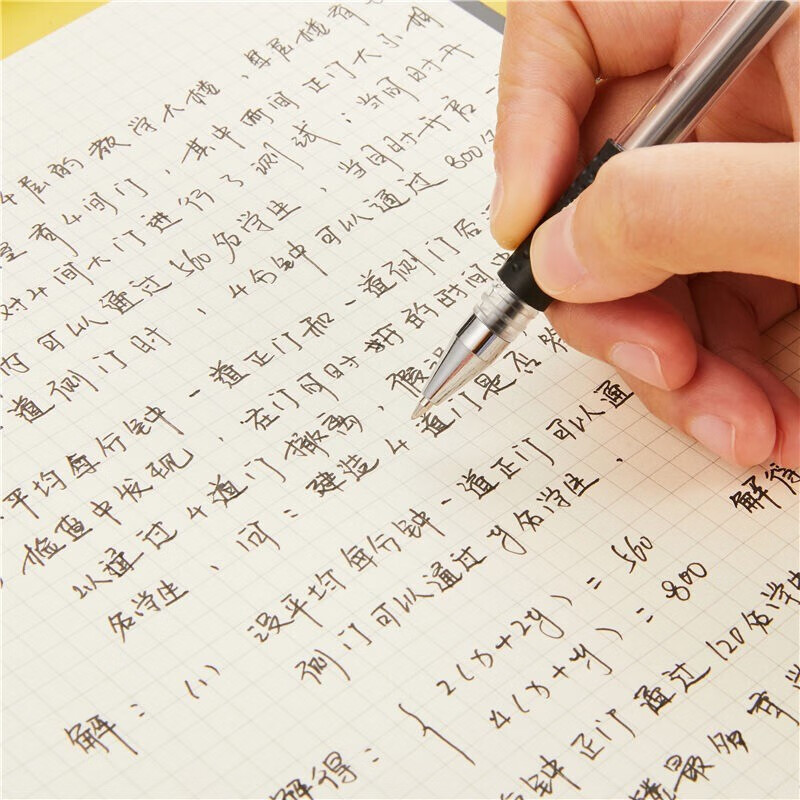 4层的教学大楼,每层楼有
有4间门,其中两间正门大小相
对4间大门进行了测试:当同时开
内可以通过560名学生,当同时开启一
道侧门时,4分钟可以通过800名
平均每分钟一道正门和一道侧门各
,检查中发现,在门同时好的时间
以通过4道门撤离,假设
名学生,问:建造4道门是否符
解:(1) 设平均每分钟一道正门可以通
侧门可以通过y名学生,
2(x+2y)=560
4(x+y)=800
解得
解得:
分钟正门通过120名学
楼最多有